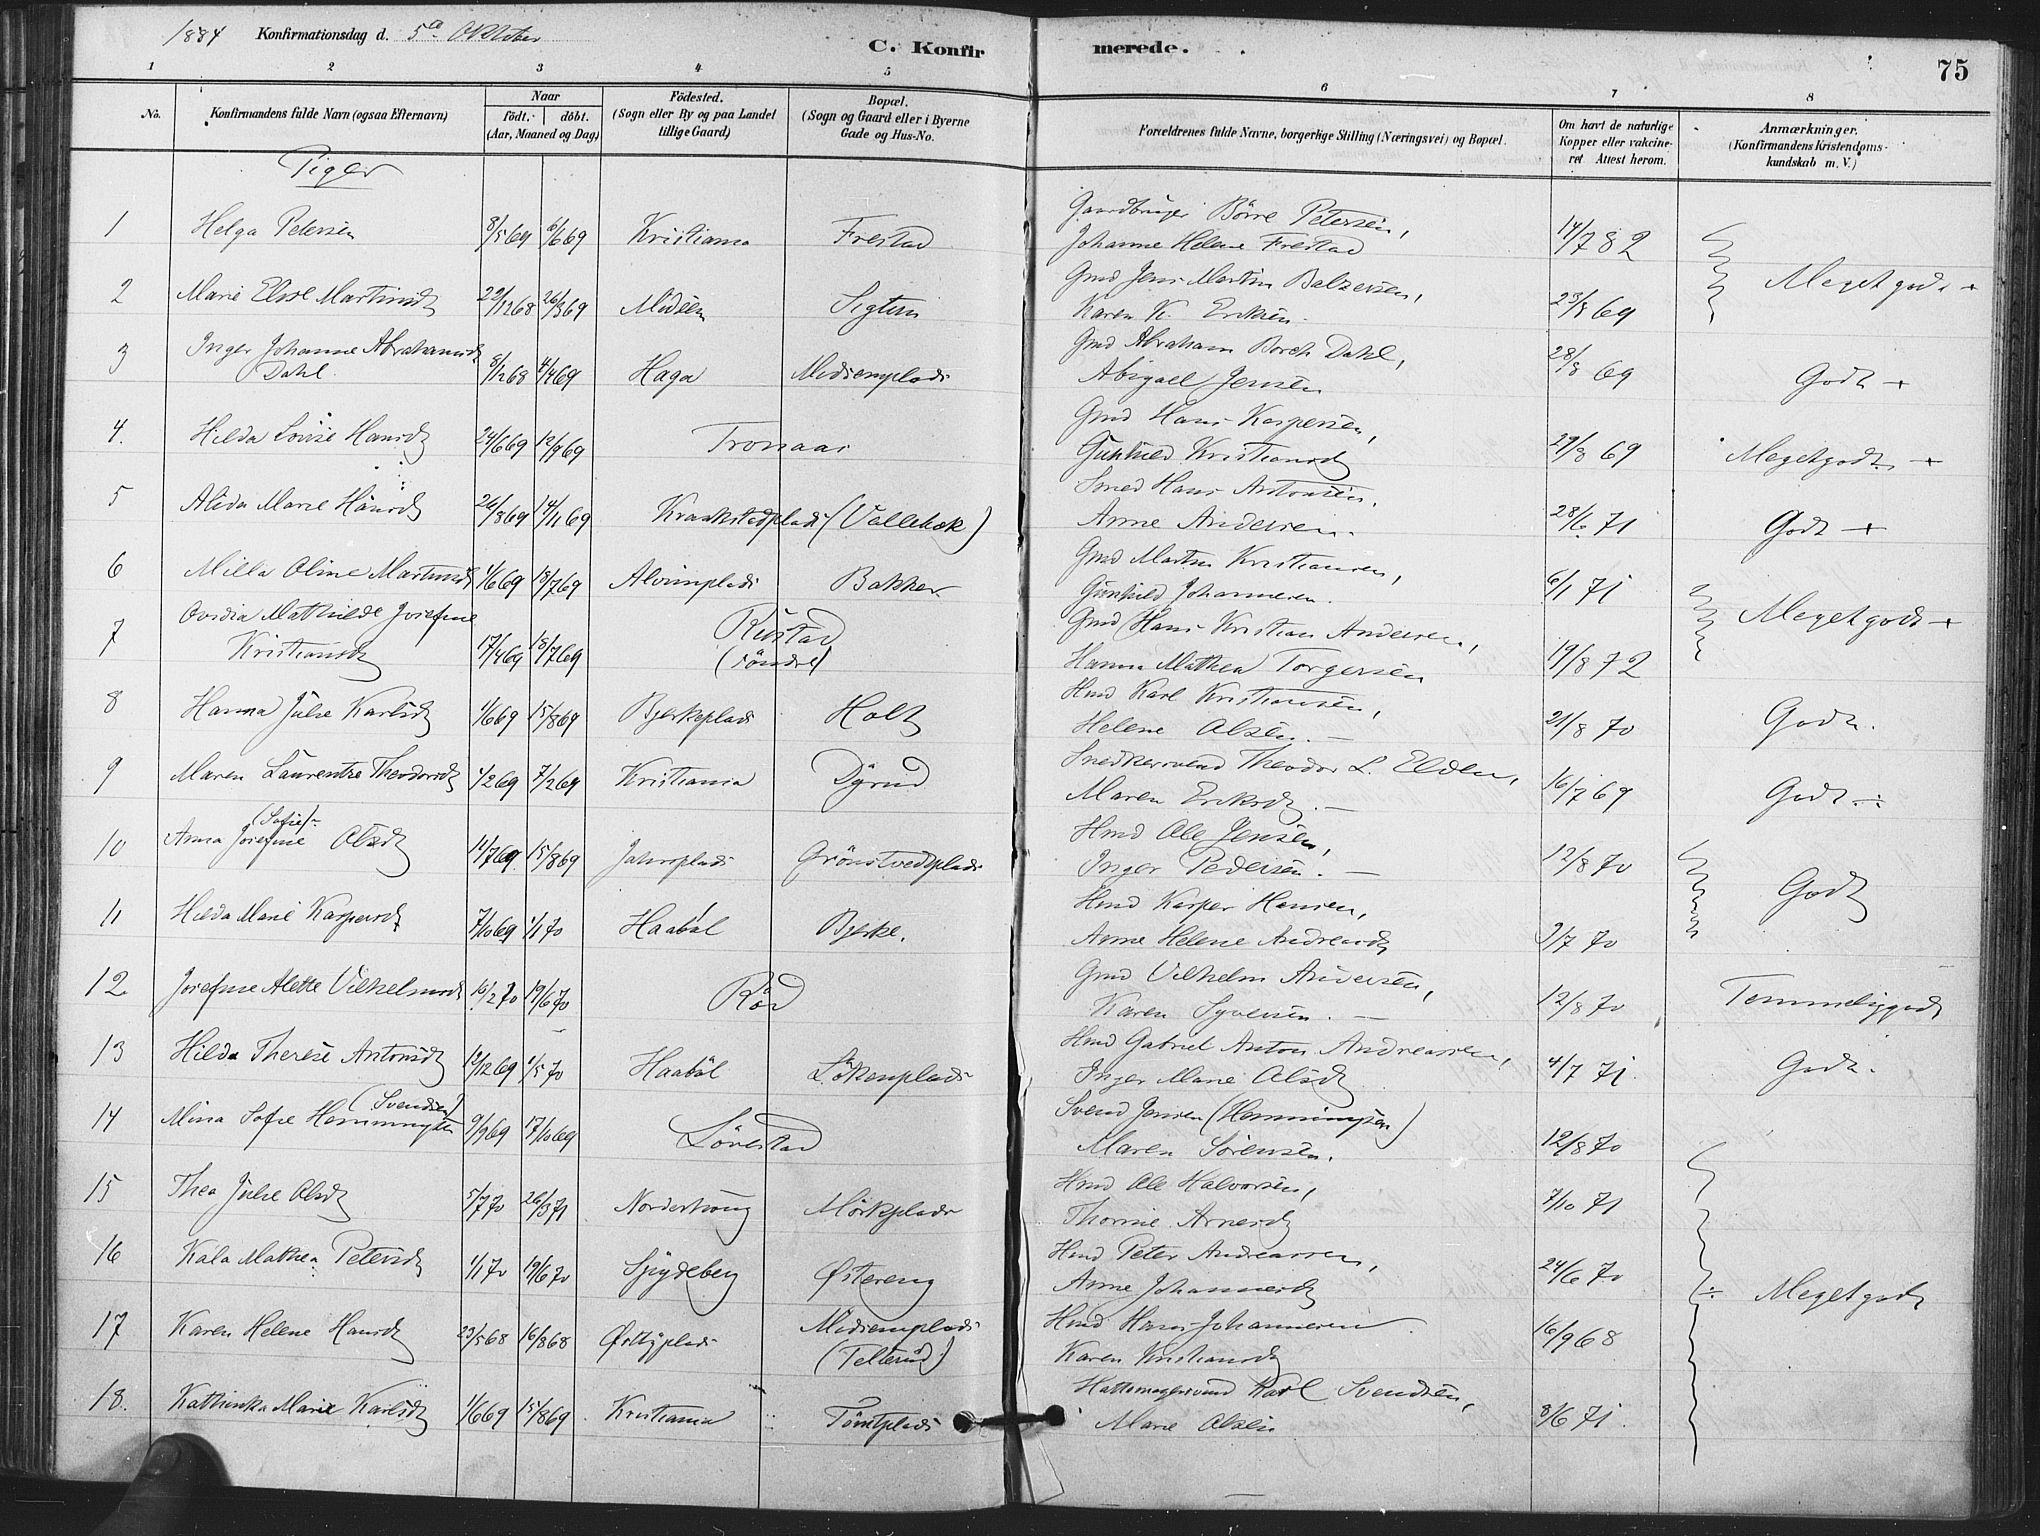 1884 Konfirmationsdag d. 5te Oktober
C. Konfirmerede.
75
1 2 3 4 5 6 7 8
No.
Konfirmandens fulde Navn (ogsaa Efternavn)
Naar
födt. döbt.
(Aar, Maaned og Dag)
Födested.
(Sogn eller By og paa Landet
tillige Gaard)
Bopæl.
(Sogn og Gaard eller i Byerne
Gade og Hus-No.
Forældrenes fulde Navne, borgerlige Stilling (Næringsvei) og Bopæl.
Om havt de naturlige
Kopper eller vakcine-
ret Attest herom.
Anmærkninger.
(Konfirmandens Kristendoms-
kundskab m. V.)
Piger
1 Helga Petersen 8/5 69 6/6 69 Kristiania Frestad
Gaardbruger Börre Petersen,
Johanne Helene Frestad 14/7 82
2 Marie Elise Martinsd 29/12 68 26/3 69 Modsem Sigtun
Gmd Jens Martin Balzersen,
Karen K. Eriksen. 23/8 69 Meget godt +
3 Inger Johanne Abrahamsd
Dahl 8/12 68 4/4 69 Haga Modsemplads
Gmd Abraham Borch Dahl,
Abigael Jensen 28/8 69 Godt +
4. Hilda Lovise Hansd 24/6 69 12/9 69 Tronaas
Gmd Hans Kaspersen,
Gunhild Kristiansd 29/8 69 Meget godt +
5 Alida Marie Hansd 26/8 69 14/11 69 Kraakstadplads (Vallebæk)
Smed Hans Antonsen,
Anne Andersen. 28/6 71 Godt +
6 Milla Oline Martinsd 1/6 69 18/7 69 Alvimplads Bakker
Gmd Martin Kristiansen,
Gunhild Johannesen. 6/1 71
7 Ovidia Mathilde Josefine
Kristiansd 17/4 69 18/7 69 Rustad
(söndre)
Gmd (Hans Kristian Andersen,
Hanna Mathea Torgersen 19/8 72 Meget godt +
8 Hanna Julie Karlsd 1/6 69 15/8 69 Bjerkeplads Holt
Hmd Karl Kristiansen,
Helene Olsen. — 21/8 70 Godt.
9 Maren Laurentze Theodorsd 1/2 69 7/2 69 Kristiania Dyrud
Snedkersvend Theodor L. Elden,
Maren Eriksd. — 16/7 69 Godt ÷
10 Anna Josefine (Sofie) Olsd 11/7 69 15/8 69 Jahrplads Grönstvedtplads
Hmd Ole Jensen,
Inger Pedersen. — 12/8 70
11 Hilda Marie Kaspersd 7/10 69 1/1 70 Haaböl Bjerke.
Hmd Kasper Hansen,
Anne Helene Andreasd 9/7 70 Godt
12 Josefine Alette Vilhelmsd 16/2 70 19/6 70 Röd
Gmd Vilhelm Andersen,
Karen Syversen. — 12/8 70 Temmelig godt
13 Hilda Therese Antonsd 12/12 69 1/5 70 Haaböl Lökenplads
Hmd Gabriel Anton Andreassen,
Inger Marie Olsd 4/7 71 Godt.
14 Mina Sofie Hemmingsen (Svendsen) 9/9 69 17/10 69 Lövestad
Svend Jensen (Hemmingsen)
Maren Sørensen. 12/8 70
15 Thea Julie Olsd 5/7 70 26/3 71 Norderhoug Mörkplads
Hmd Ole Halvorsen,
Thorine Arnesd 7/10 71
16 Kala Mathea Petersd 1/1 70 19/6 70 Spydeberg Østereng
Hmd Peter Andreassen,
Anne Johannesd 24/6 70 ÷ Meget godt
17 Karen Helene Hansd 23/5 68 16/8 68 Østbyplads Modsemplads
(Telterud)
Hmd Hans Johannesen
Karen Kristiansd 16/9 68
18. Kathinka Marie Karlsd 1/6 69 15/8 69 Kristiania Tömtplads
Hattemagersvend Karl Svendsen,
Marie Olsen 8/6 71.